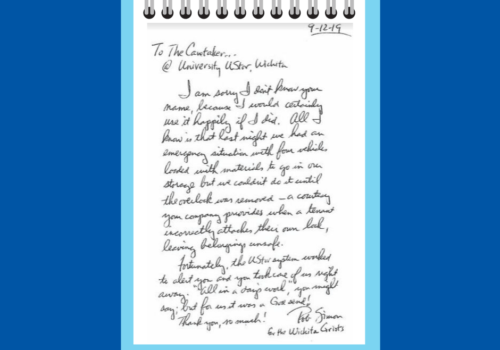 9-12-19
To The Caretaker...
@ University UStor, Wichita
I am sorry I don't know your
name, because I would certainly
use it happily if I did. All I
know is that last night we had an
emergency situation with four vehicles
loaded with materials to go in our
storage but we couldn't do it until
the overlock was removed - a courtesy
your company provides when a tenant
incorrectly attaches their own lock,
leaving belongings unsafe.
Fortunately, the UStor system worked
to alert you and you took care of us right
away. "All in a day's work," you might
say; but for us it was a God send!
Thank you, so much!
Rob Simon
for the Wichita Grists